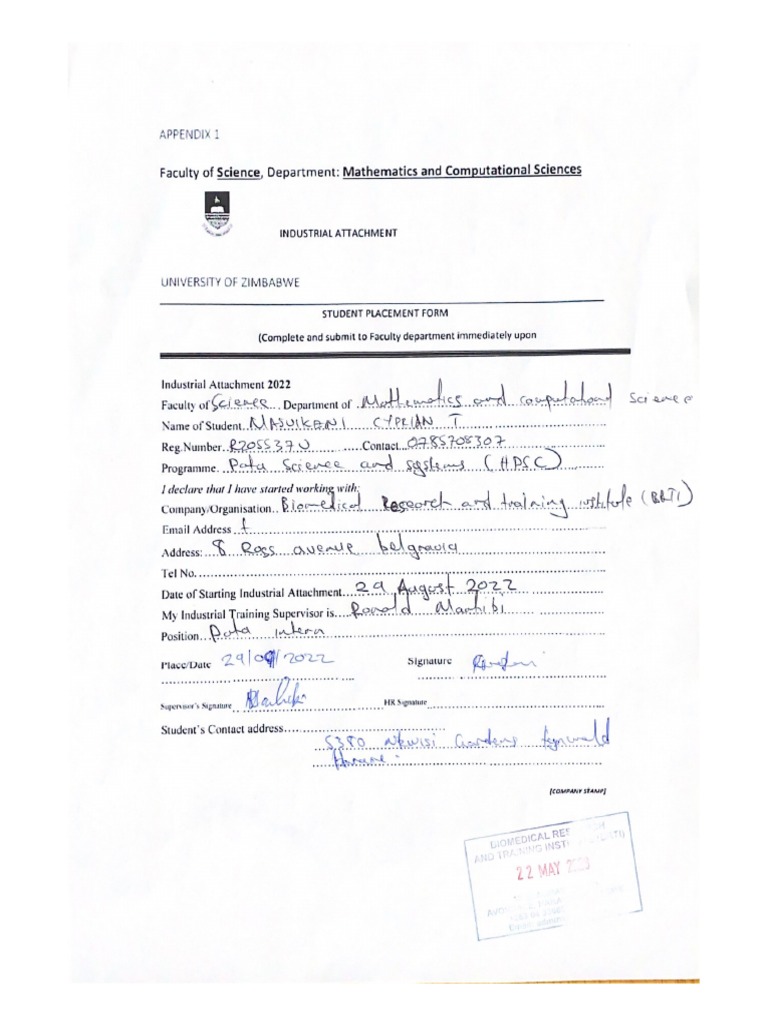 APPENDIX 1
Faculty of Science, Department: Mathematics and Computational Sciences
INDUSTRIAL ATTACHMENT
UNIVERSITY OF ZIMBABWE
STUDENT PLACEMENT FORM
(Complete and submit to Faculty department immediately upon
Industrial Attachment 2022
Faculty of Science Department of Mathematics and computational Science
Name of Student MAJVIKENI CYPRIAN T
Reg.Number R205537U Contact 0785708307
Programme Data Science and systems (HDSC)
I declare that I have started working with:
Company/Organisation Biomedical Research and training institute (BRTI)
Email Address
Address: 8 Ross avenue belgravia
Tel No.
Date of Starting Industrial Attachment 29 August 2022
My Industrial Training Supervisor is Ronald
Position Data intern
Place/Date 29/09/2022 Signature
Supervisor's Signature HR Signature
Student's Contact address
5380 Nkwisi Gardens
Harare
(COMPANY STAMP)
BIOMEDICAL RES
AND TRAINING INST
22 MAY